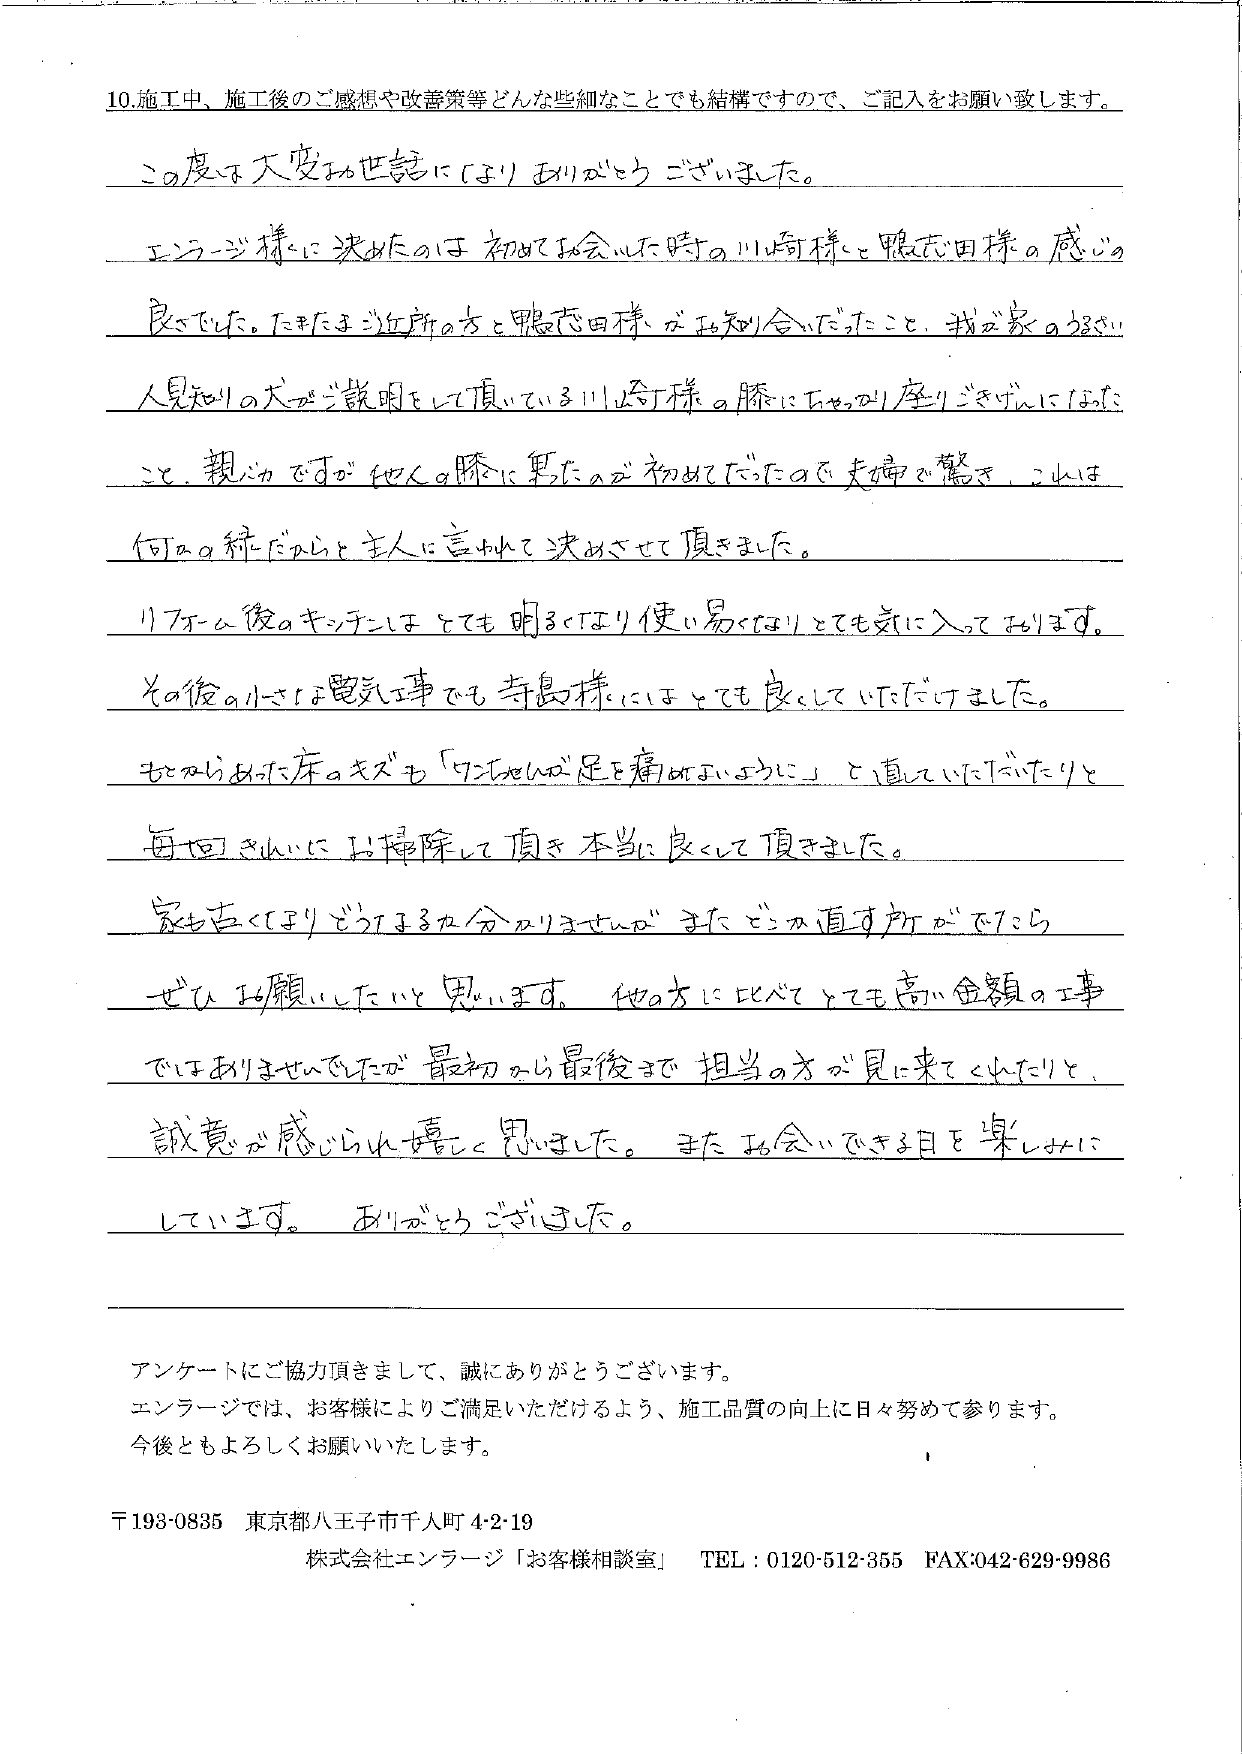 10.施工中、施工後のご感想や改善策等どんな些細なことでも結構ですので、ご記入をお願い致します。
この度は大変お世話になり ありがとう ございました。
エンラージ様に決めたのは 初めてお会いした時の川崎様と鴨志田様の感じの
良さでした。たまたまご近所の方と鴨志田様がお知り合いだったこと、我が家のうるさい
人見知りの犬がご説明をして頂いている川崎様の膝にちゃっかり座りごきげんになった
こと、親バカですが他人の膝に乗ったのが初めてだったので夫婦で驚き、これは
何かの縁だからと主人に言われて決めさせて頂きました。
リフォーム後のキッチンはとても明るくなり使い易くなりとても気に入っております。
その後の小さな電気工事でも寺島様にはとても良くしていただけました。
もとからあった床のキズも「ワンちゃんが足を痛めないように」と直していただいたりと
毎回きれいにお掃除して頂き本当に良くして頂きました。
家も古くなりどうなるか分かりませんが またどこか直す所がでたら
ぜひお願いしたいと思います。 他の方に比べてとても高い金額の工事
ではありませんでしたが最初から最後まで担当の方が見に来てくれたりと、
誠意が感じられ嬉しく思いました。 またお会いできる日を楽しみに
しています。 ありがとうございました。
アンケートにご協力頂きまして、誠にありがとうございます。
エンラージでは、お客様によりご満足いただけるよう、施工品質の向上に日々努めて参ります。
今後ともよろしくお願いいたします。
〒193-0835 東京都八王子市千人町 4-2-19
株式会社エンラージ「お客様相談室」 TEL：0120-512-355 FAX:042-629-9986